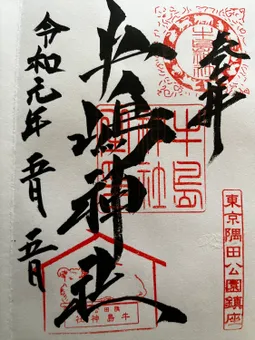 奉拝
東京隅田公園鎮座
牛島
神社
牛嶋神社
牛島神社
令和元年 五月 五日